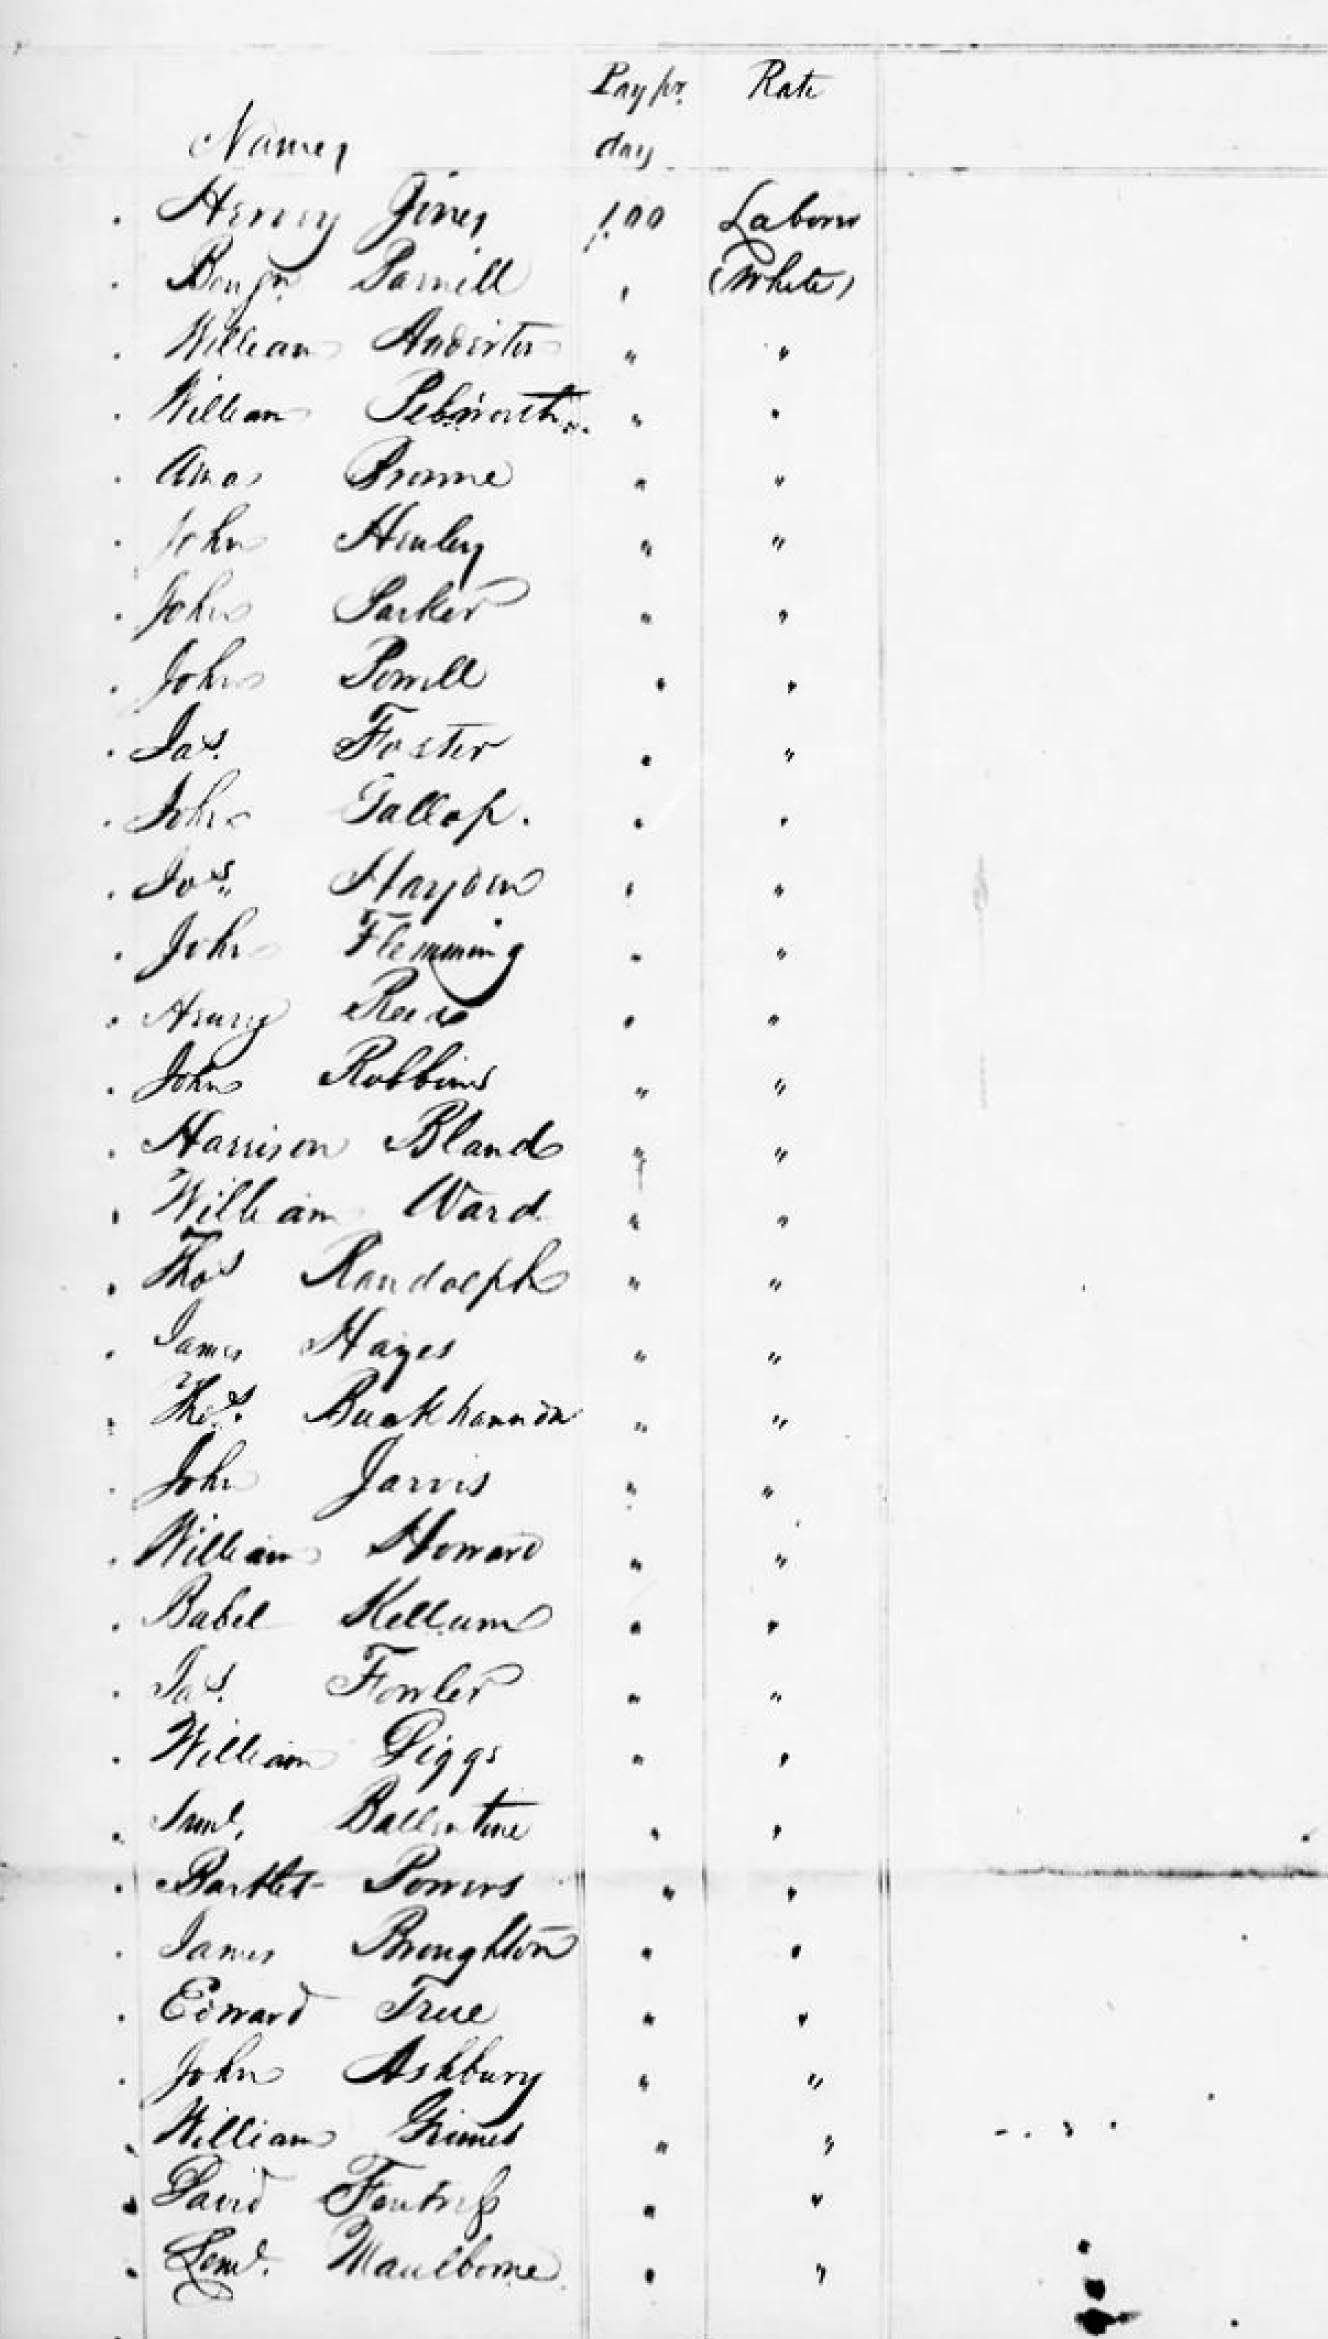 Names Pay pr. day Rate
Henry Jones 1.00 Laborer
Benjn. Parnill " (White)
William Anderton " "
William Pebworth " "
Amos Browne " "
John Henley " "
John Parker " "
John Powell " "
Jas. Foster " "
John Gallop. " "
Jos. Hayden " "
John Flemming " "
Henry Reed " "
John Robbins " "
Harrison Bland " "
William Ward " "
Thos Randolph " "
James Hayes " "
Thos. Buckhannon " "
John Jarvis " "
William Howard " "
Babel Kellum " "
Jas. Fowler " "
William Diggs " "
Saml. Ballentine " "
Bartlet Powers " "
James Broughton " "
Edward True " "
John Ashbury " "
William Grimes " "
David Fentress " "
Leml. Maulborne " "